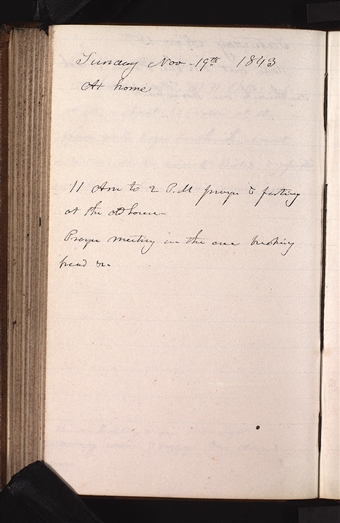 Sunday Nov- 19th 1843
At home
11 Am to 2 P.M prayer & fasting
at the old house
Prayer meeting in the eve breaking
bread &c